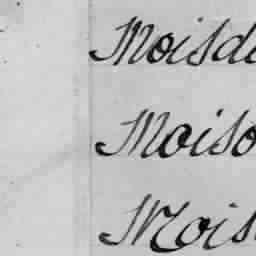 Moisdo
Moiso
Mois